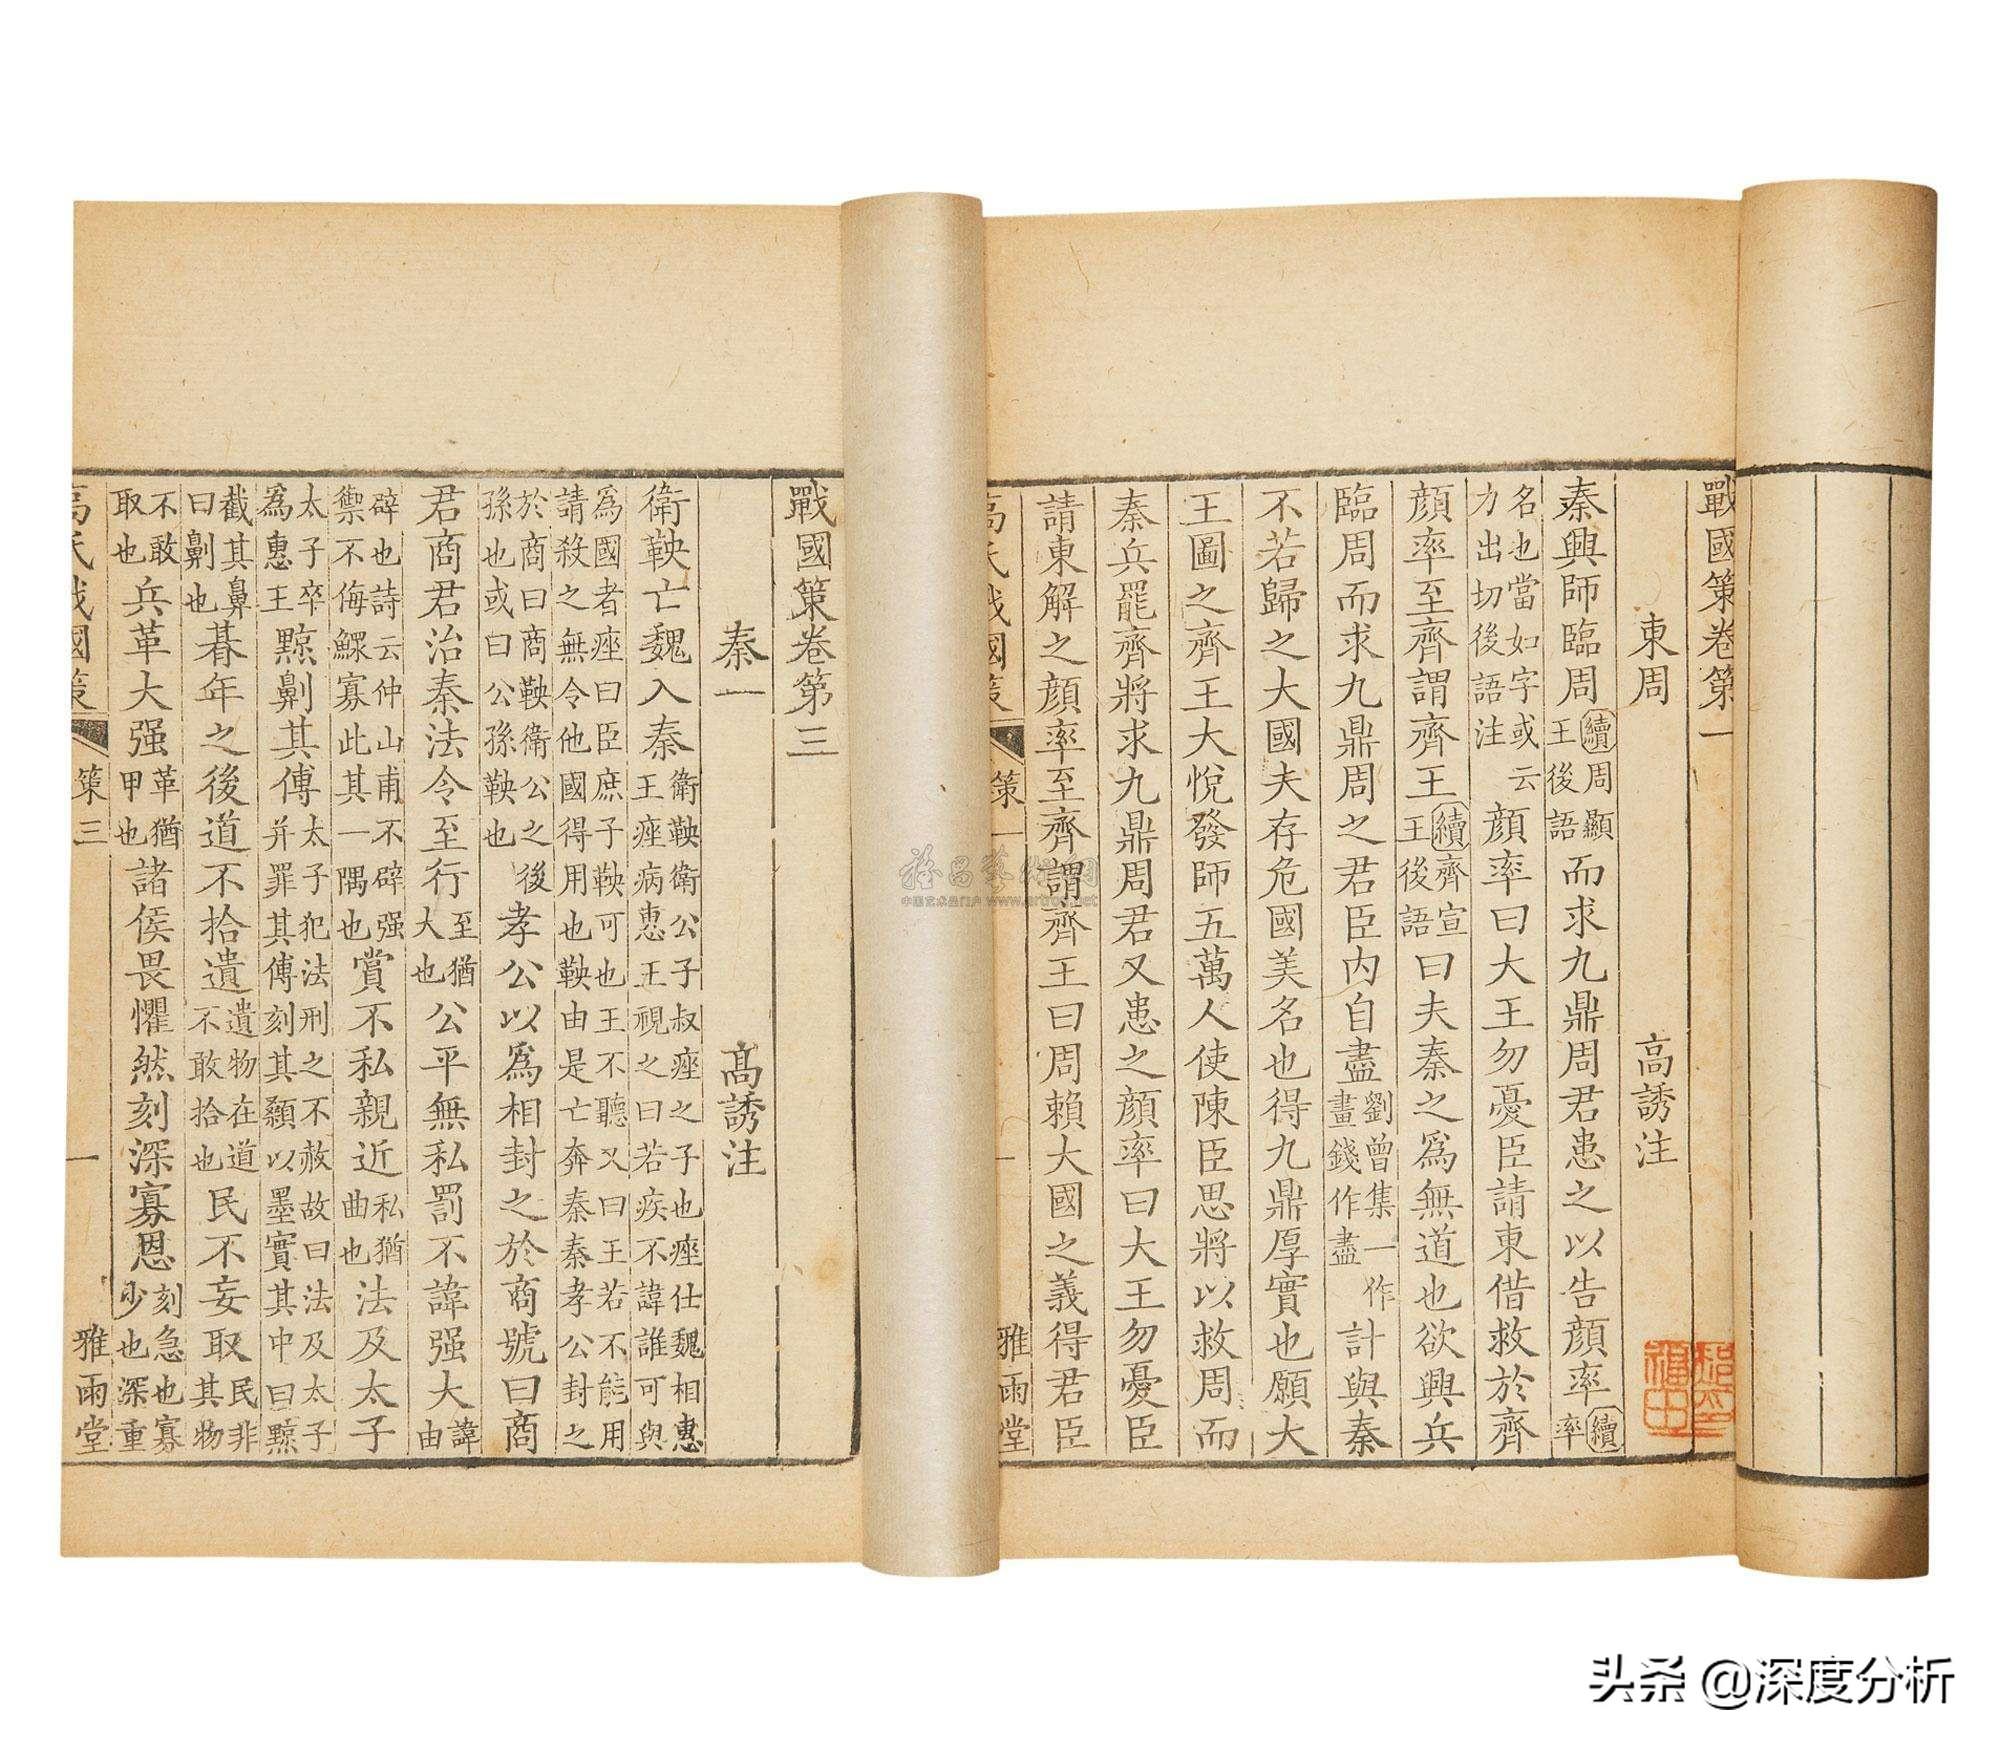 戰國策卷第一
東周 高誘注
秦興師臨周續周顯王後語而求九鼎周君患之以告顏率續率
名也當如字或云力出切後語注顏率曰大王勿憂臣請東借救於齊
顏率至齊謂齊王續齊宣王後語曰夫秦之爲無道也欲興兵
臨周而求九鼎周之君臣內自盡劉曾集一作畫錢作盡計與秦
不若歸之大國夫存危國美名也得九鼎厚實也願大
王圖之齊王大悅發師五萬人使陳臣思將以救周而
秦兵罷齊將求九鼎周君又患之顏率曰大王勿憂臣
請東解之顏率至齊謂齊王曰周賴大國之義得君臣
高氏戰國策 策一 一 雅雨堂
戰國策卷第三
秦一 高誘注
衛鞅亡魏入秦衛鞅衛公子叔痤之子也痤仕魏相惠王痤病惠王視之曰若疾不諱誰可與
爲國者痤曰臣庶子鞅可也王不聽又曰王若不能用請殺之無令他國得用也鞅由是亡奔秦秦孝公封之
於商曰商鞅衛公之後孫也或曰公孫鞅也孝公以爲相封之於商號曰商
君商君治秦法令至行至猶大也公平無私罰不諱强大諱由
辟也詩云仲山甫不辟强禦不侮鰥寡此其一隅也賞不私親近私猶曲也法及太子
太子卒爲惠王黥劓其傅太子犯法刑之不赦故曰法及太子并罪其傅刻其顙以墨實其中曰黥
截其鼻曰劓也朞年之後道不拾遺遺物在道不敢拾也民不妄取民非其物
不敢取也兵革大强革猶甲也諸侯畏懼然刻深寡恩刻急也寡少也深重
高氏戰國策 策三 一 雅雨堂
中国艺术品门户 www.artron.net
头条 @深度分析